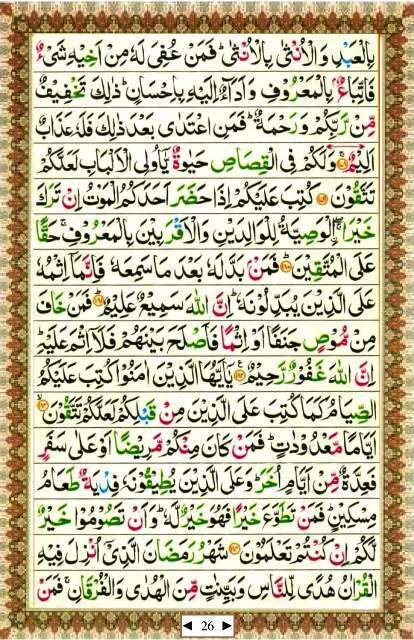 بِالْعَبْدِ وَالْاُنْثٰى بِالْاُنْثٰىؕ فَمَنْ عُفِىَ لَهٗ مِنْ اَخِيْهِ شَىْءٌ
فَاتِّبَاعٌۢ بِالْمَعْرُوْفِ وَاَدَآءٌ اِلَيْهِ بِاِحْسَانٍؕ ذٰلِكَ تَخْفِيْفٌ
مِّنْ رَّبِّكُمْ وَرَحْمَةٌؕ فَمَنِ اعْتَدٰى بَعْدَ ذٰلِكَ فَلَهٗ عَذَابٌ
اَلِيْمٌ‏ ﴿۱۷۸﴾ وَلَكُمْ فِى الْقِصَاصِ حَيٰوةٌ يّٰٓاُولِى الْاَلْبَابِ لَعَلَّكُمْ
تَتَّقُوْنَ ﴿۱۷۹﴾ كُتِبَ عَلَيْكُمْ اِذَا حَضَرَ اَحَدَكُمُ الْمَوْتُ اِنْ تَرَكَ
خَيْرَا ۖۚ اۨلْوَصِيَّةُ لِلْوَالِدَيْنِ وَالْاَقْرَبِيْنَ بِالْمَعْرُوْفِۚ حَقًّا
عَلَى الْمُتَّقِيْنَؕ ﴿۱۸۰﴾ فَمَنْۢ بَدَّلَهٗ بَعْدَ مَا سَمِعَهٗ فَاِنَّمَآ اِثْمُهٗ
عَلَى الَّذِيْنَ يُبَدِّلُوْنَهٗؕ اِنَّ اللّٰهَ سَمِيْعٌ عَلِيْمٌؕ ﴿۱۸۱﴾ فَمَنْ خَافَ
مِنْ مُّوْصٍ جَنَفًا اَوْ اِثْمًا فَاَصْلَحَ بَيْنَهُمْ فَلَآ اِثْمَ عَلَيْهِؕ
اِنَّ اللّٰهَ غَفُوْرٌ رَّحِيْمٌ ﴿۱۸۲﴾ يٰٓاَيُّهَا الَّذِيْنَ اٰمَنُوْا كُتِبَ عَلَيْكُمُ
الصِّيَامُ كَمَا كُتِبَ عَلَى الَّذِيْنَ مِنْ قَبْلِكُمْ لَعَلَّكُمْ تَتَّقُوْنَۙ ﴿۱۸۳﴾
اَيَّامًا مَّعْدُوْدٰتٍؕ فَمَنْ كَانَ مِنْكُمْ مَّرِيْضًا اَوْ عَلٰى سَفَرٍ
فَعِدَّةٌ مِّنْ اَيَّامٍ اُخَرَؕ وَعَلَى الَّذِيْنَ يُطِيْقُوْنَهٗ فِدْيَةٌ طَعَامُ
مِسْكِيْنٍؕ فَمَنْ تَطَوَّعَ خَيْرًا فَهُوَ خَيْرٌ لَّهٗؕ وَاَنْ تَصُوْمُوْا خَيْرٌ
لَّكُمْ اِنْ كُنْتُمْ تَعْلَمُوْنَ ﴿۱۸۴﴾ شَهْرُ رَمَضَانَ الَّذِىْٓ اُنْزِلَ فِيْهِ
الْقُرْاٰنُ هُدًى لِّلنَّاسِ وَبَيِّنٰتٍ مِّنَ الْهُدٰى وَالْفُرْقَانِۚ فَمَنْ
◄ 26 ►